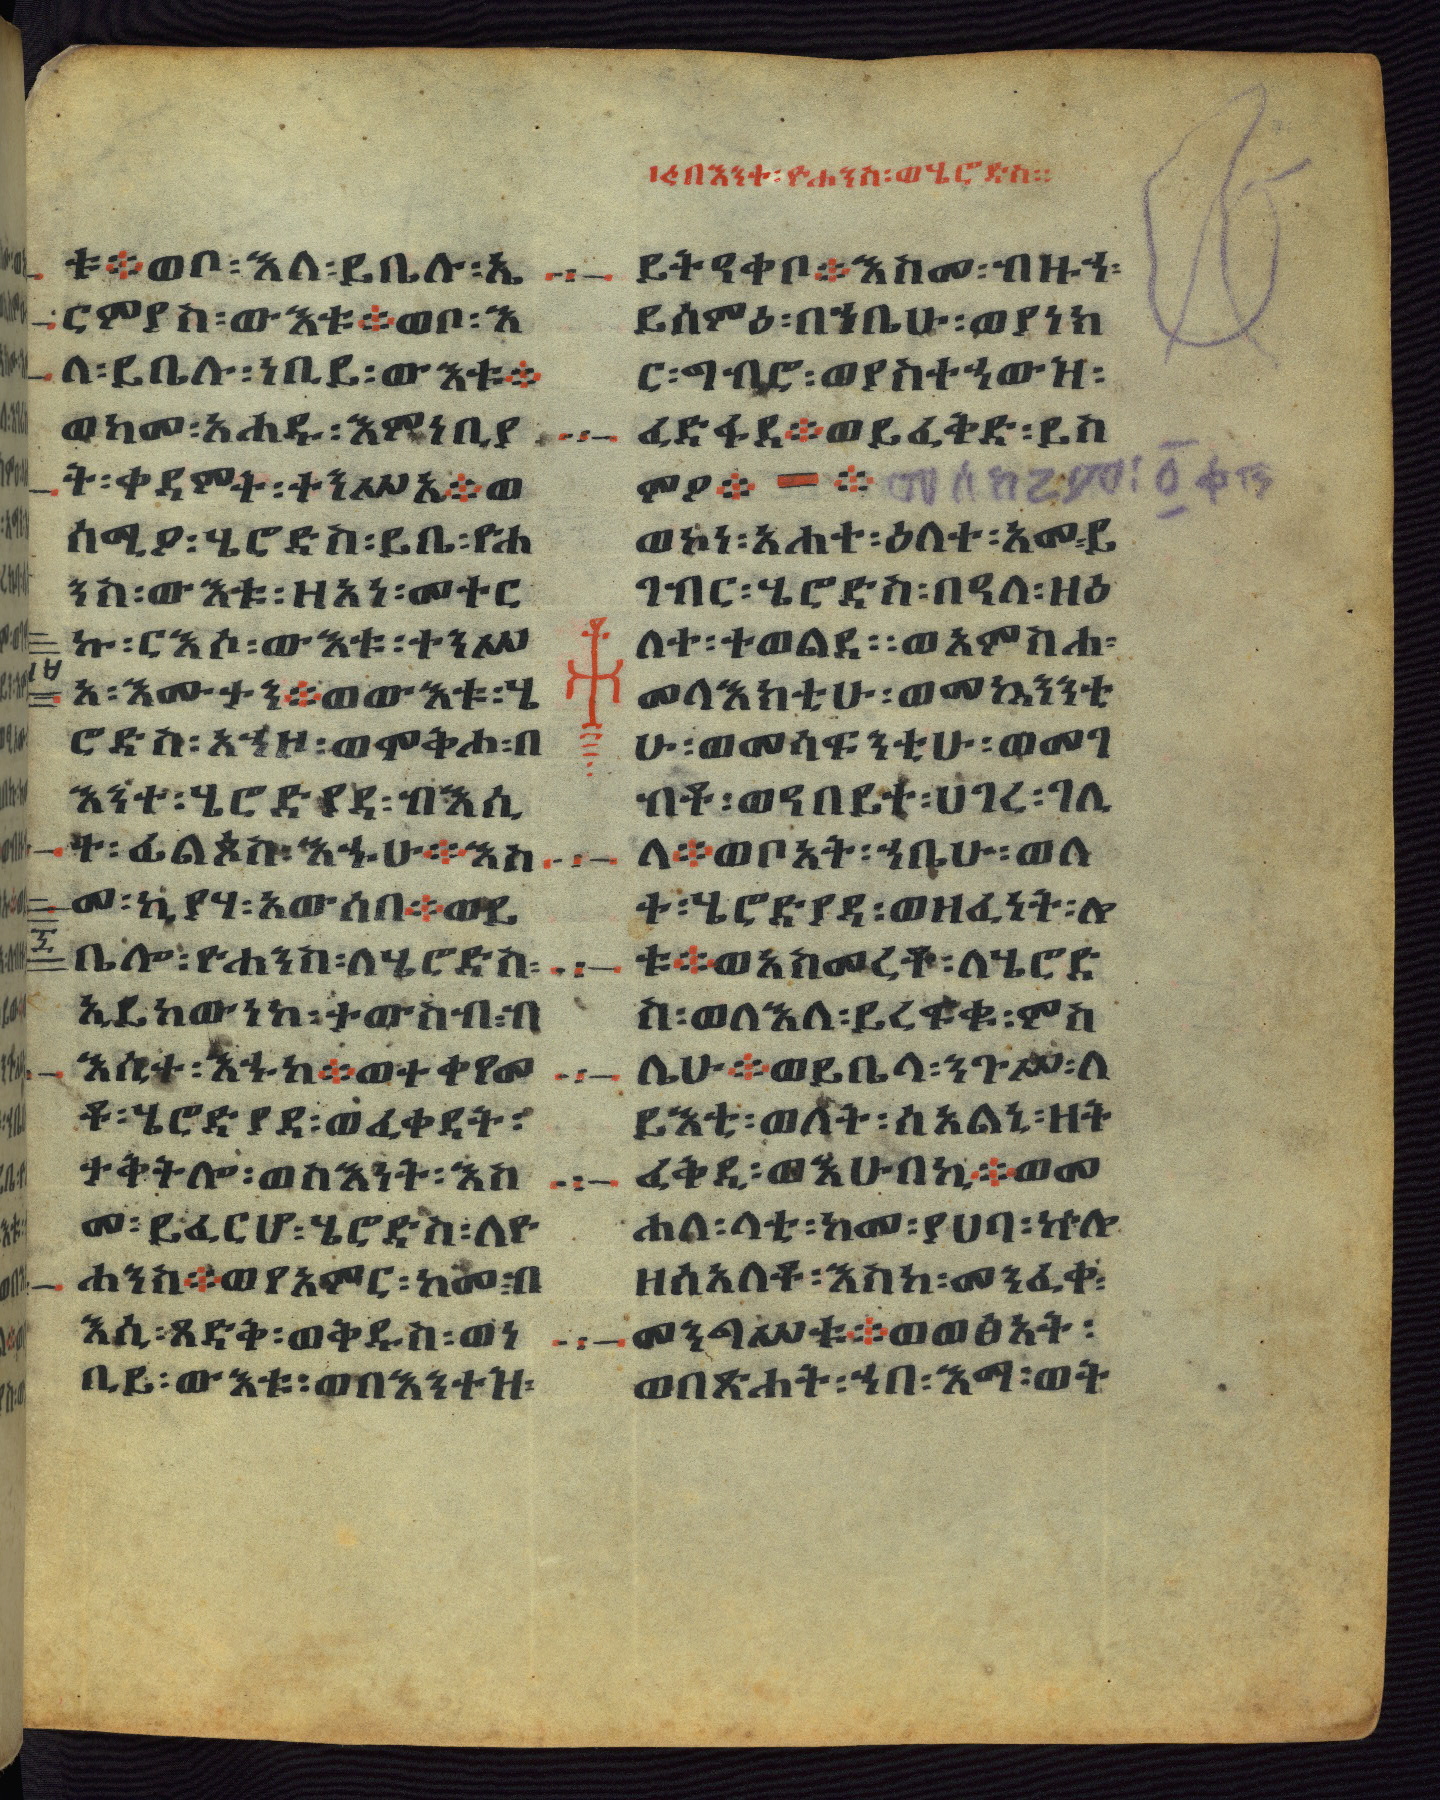 በእንተ፡ዮሐንስ፡ወሄሮድስ።
ቱ፨ወቦ፡እለ፡ይቤሉ፡ኢ
ርምያስ፡ውእቱ፨ወቦ፡እ
ለ፡ይቤሉ፡ነቢይ፡ውእቱ፨
ወከመ፡አሐዱ፡እምነቢያ
ት፡ቀዳምት፡ተንሥአ፨ወ
ሰሚዖ፡ሄሮድስ፡ይቤ፡ዮሐ
ንስ፡ውእቱ፡ዘአነ፡መተር
ኩ፡ርእሶ፡ውእቱ፡ተንሥ
አ፡እሙታን፨ወውእቱ፡ሄ
ሮድስ፡አኀዞ፡ወሞቅሖ፡በ
እንተ፡ሄሮድያዳ፡ብእሲ
ት፡ፊልጶስ፡እኁሁ፨እስ
መ፡ኪያሃ፡አውሰበ፨ወይ
ቤሎ፡ዮሐንስ፡ለሄሮድስ፡
ኢይከውነከ፡ታውስብ፡ብ
እሲተ፡እኁከ፨ወተቀየመ
ቶ፡ሄሮድያዳ፡ወፈቀዳት፡
ታቅትሎ፡ወስእነት፡እስ
መ፡ይፈርሆ፡ሄሮድስ፡ለዮ
ሐንስ፨ወየአምር፡ከመ፡ብ
እሲ፡ጻድቅ፡ወቅዱስ፡ወነ
ቢይ፡ውእቱ፡ወበእንተዝ፡
ይትዓቀቦ፨እስመ፡ብዙኀ፡
ይሰምዕ፡በኀቤሁ፡ወያነክ
ር፡ግብሮ፡ወያስተኀውዝ፡
ፈድፋደ፨ወይፈቅድ፡ይስ
ምዖ፨ ፨
ወኮነ፡አሐተ፡ዕለተ፡አመ፡ይ
ገብር፡ሄሮድስ፡በዓለ፡ዘዕ
ለተ፡ተወልደ፡፡ወአምስሐ፡
መላእክቲሁ፡ወመኳንንቲ
ሁ፡ወመሳፍንቲሁ፡ወመገ
ብቶ፡ወዓበይተ፡ሀገረ፡ገሊ
ላ፨ወቦአት፡ኀቤሁ፡ወለ
ተ፡ሄሮድያዳ፡ወዘፈነት፡ሎ
ቱ፨ወአስመረቶ፡ለሄሮድ
ስ፡ወለእለ፡ይረፍቁ፡ምስ
ሌሁ፨ወይቤላ፡ንጉሥ፡ለ
ይእቲ፡ወለት፡ሰአልኒ፡ዘት
ፈቅዲ፡ወእሁበኪ፨ወመ
ሐለ፡ላቲ፡ከመ፡ያሀባ፡ኵሎ
ዘሰአለቶ፡እስከ፡መንፈቀ፡
መንግሥቱ፨ወወፅአት፡
ወበጽሐት፡ኀበ፡እማ፡ወት